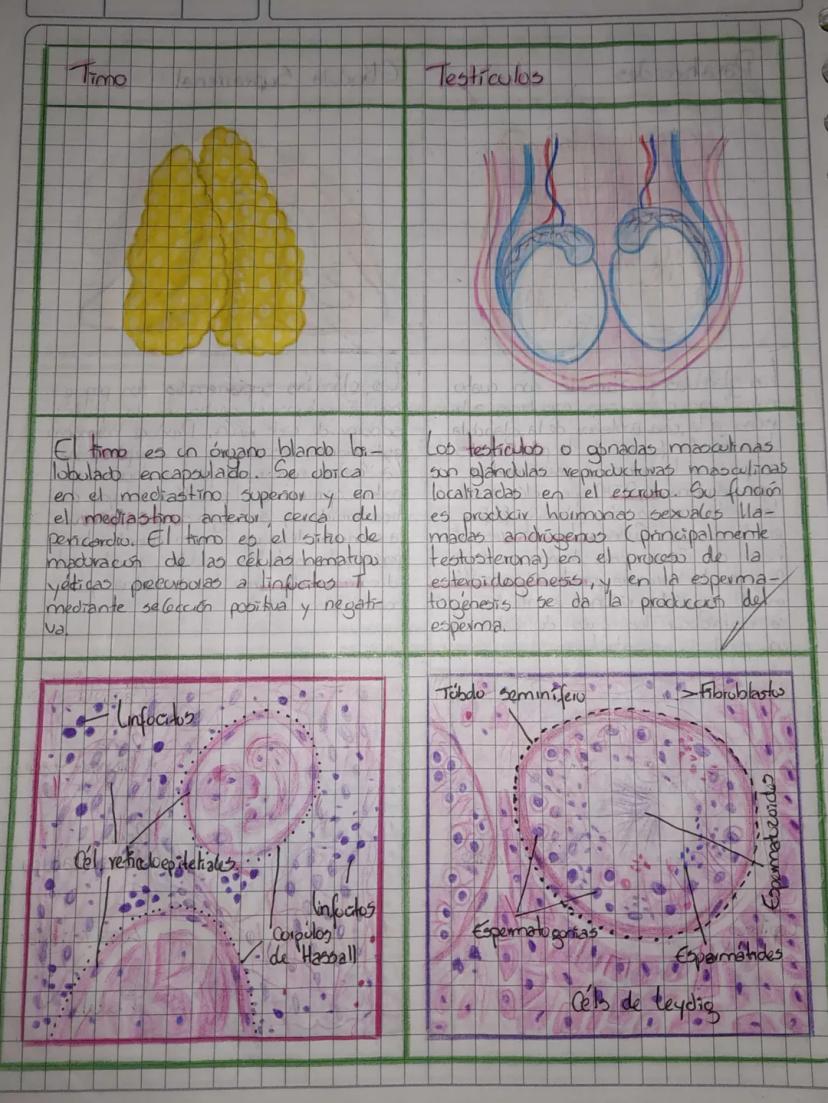 Timo
Testículos
El timo es un órgano blando bi-
lobulado encapsulado. Se ubica
en el mediastino superior y en
el mediastino anterior, cerca del
pericardio. El timo es el sitio de
maduración de las células hematopo
yéticas precursolas a linfocitos T
mediante selección positiva y negati-
va.
Los testículos o gónadas masculinas
son glándulas reproductivas masculinas
localizadas en el escroto. Su función
es producir hormonas sexuales lla-
madas andrógenos (principalmente
testosterona) en el proceso de la
esteroidogénesis, y en la esperma-
togénesis se da la producción del
esperma.
Linfocitos
Cél reticuloepiteliales
Linfocitos
Corpúlos
de Hassall
Túbulo seminífero
Fibroblasto
Espermatozoide
Espermatogonias
Espermátides
Céls de Leydig